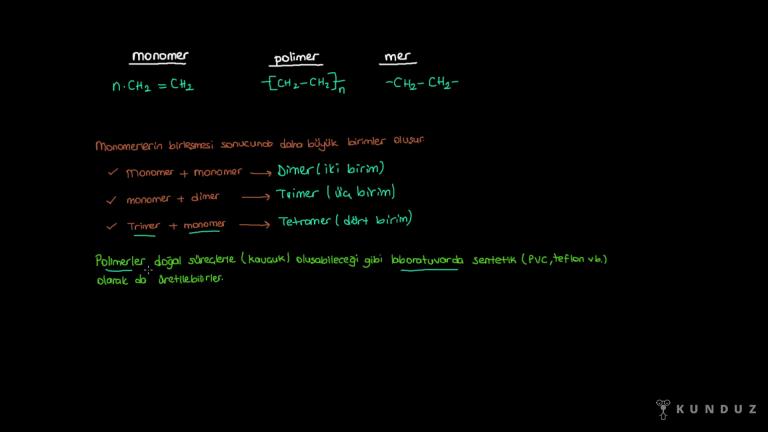 monomer polimer mer
n·CH2 = CH2 -[CH2-CH2]-n -CH2-CH2-
Monomerlerin birleşmesi sonucunda daha büyük birimler oluşur.
✓ Monomer + monomer → Dimer (iki birim)
✓ monomer + dimer → Trimer (üç birim)
✓ Trimer + monomer → Tetramer (dört birim)
Polimerler doğal süreçlerle (kauçuk) oluşabileceği gibi laboratuvarda sentetik (PVC, teflon vb.)
olarak da üretilebilirler.
KUNDUZ